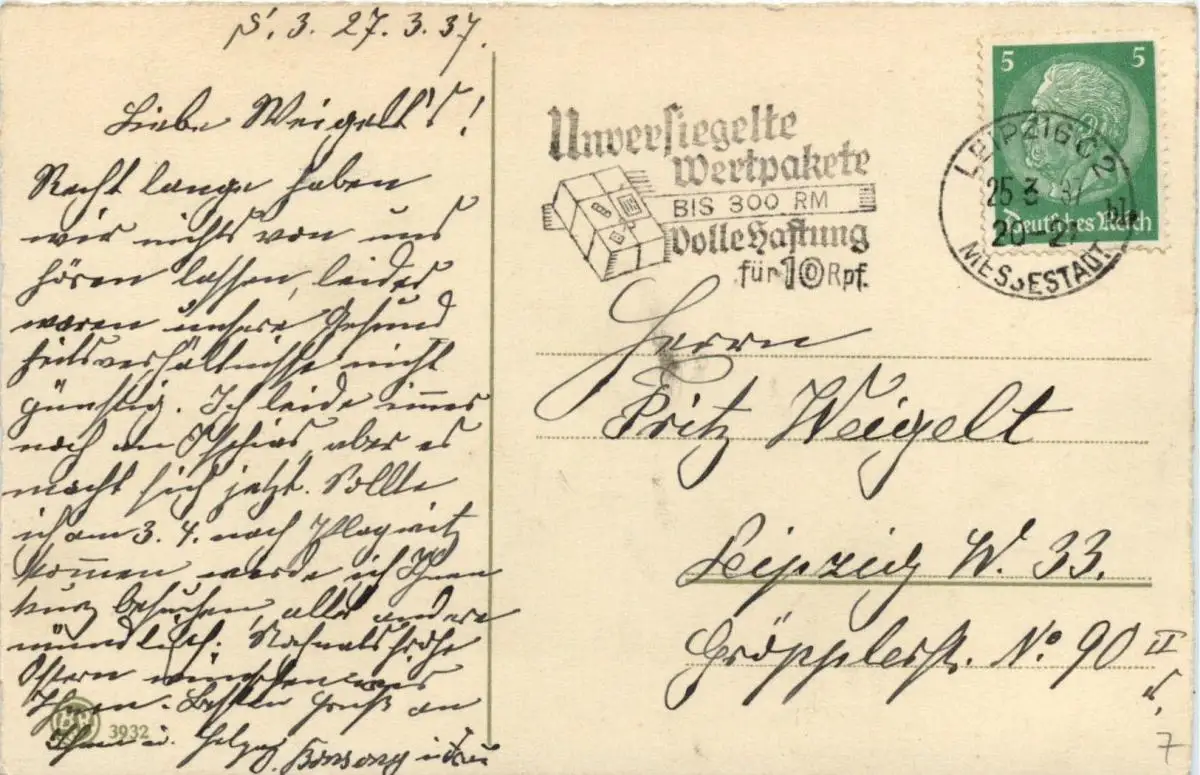 27.3.37.
Liebe Weigelt's!
Recht lange haben
wir nichts von uns
hören lassen, leider
waren unsere Gesund
heitsverhältnisse nicht
günstig. Ich leide immer
noch an Ischias, aber es
macht sich jetzt. Sollte
ich am 3. 4. nach Plagwitz
kommen werde ich Ihnen
kurz besuchen, alles andere
mündlich. Nochmals frohe
Ostern wünschen wir
Ihnen. Besten Gruß an
Ihnen u. u. Frau
3932
Unversiegelte
Wertpakete
BIS 300 RM
Volle Haftung
für 10 Rpf.
5 5
Deutsches Reich
LEIPZIG C 2
25 3 37
20-21
MESSESTADT
Herrn
Fritz Weigelt
Leipzig W. 33.
No 90 II
7